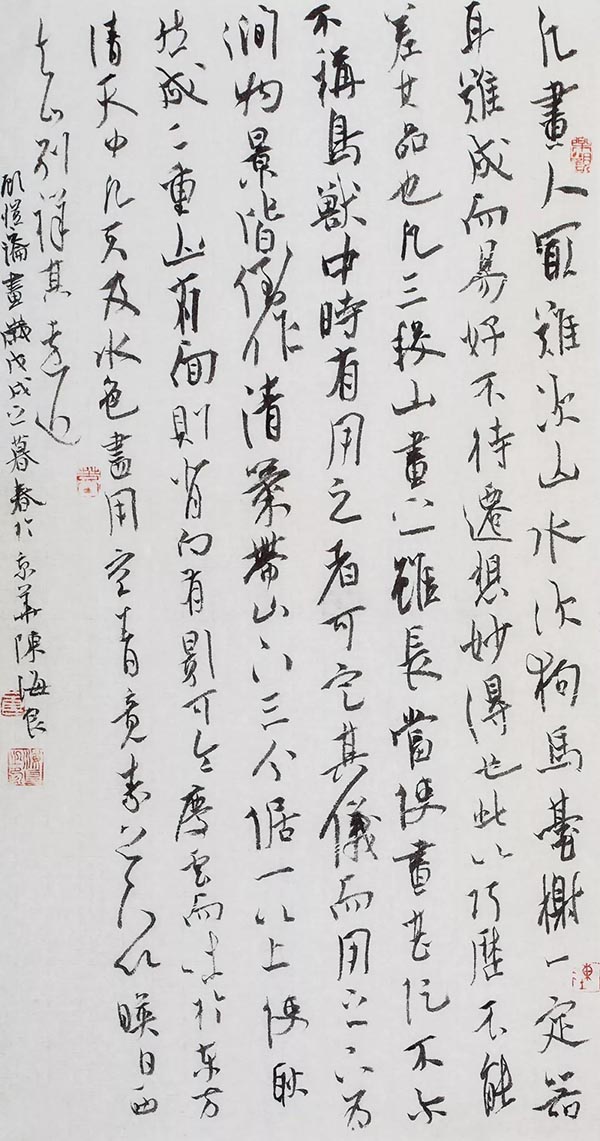 凡畫人最難次山水次狗馬臺榭一定器
耳難成而易好不待遷想妙得也此以巧歷不能
差其品也凡三段山畫之雖長當使畫甚促不尒
不稱鳥獸中時有用之者可定其儀而用之下為
澗物景皆倒作清氣帶山下三分倨一以上使耿
然成二重山有面則背向有影可令慶雲而吐於東方
清天中凡天及水色盡用空青竟素上下以暎日西
去山別詳其遠近
顧愷論畫歲戊戌之暮春於京華陳海良